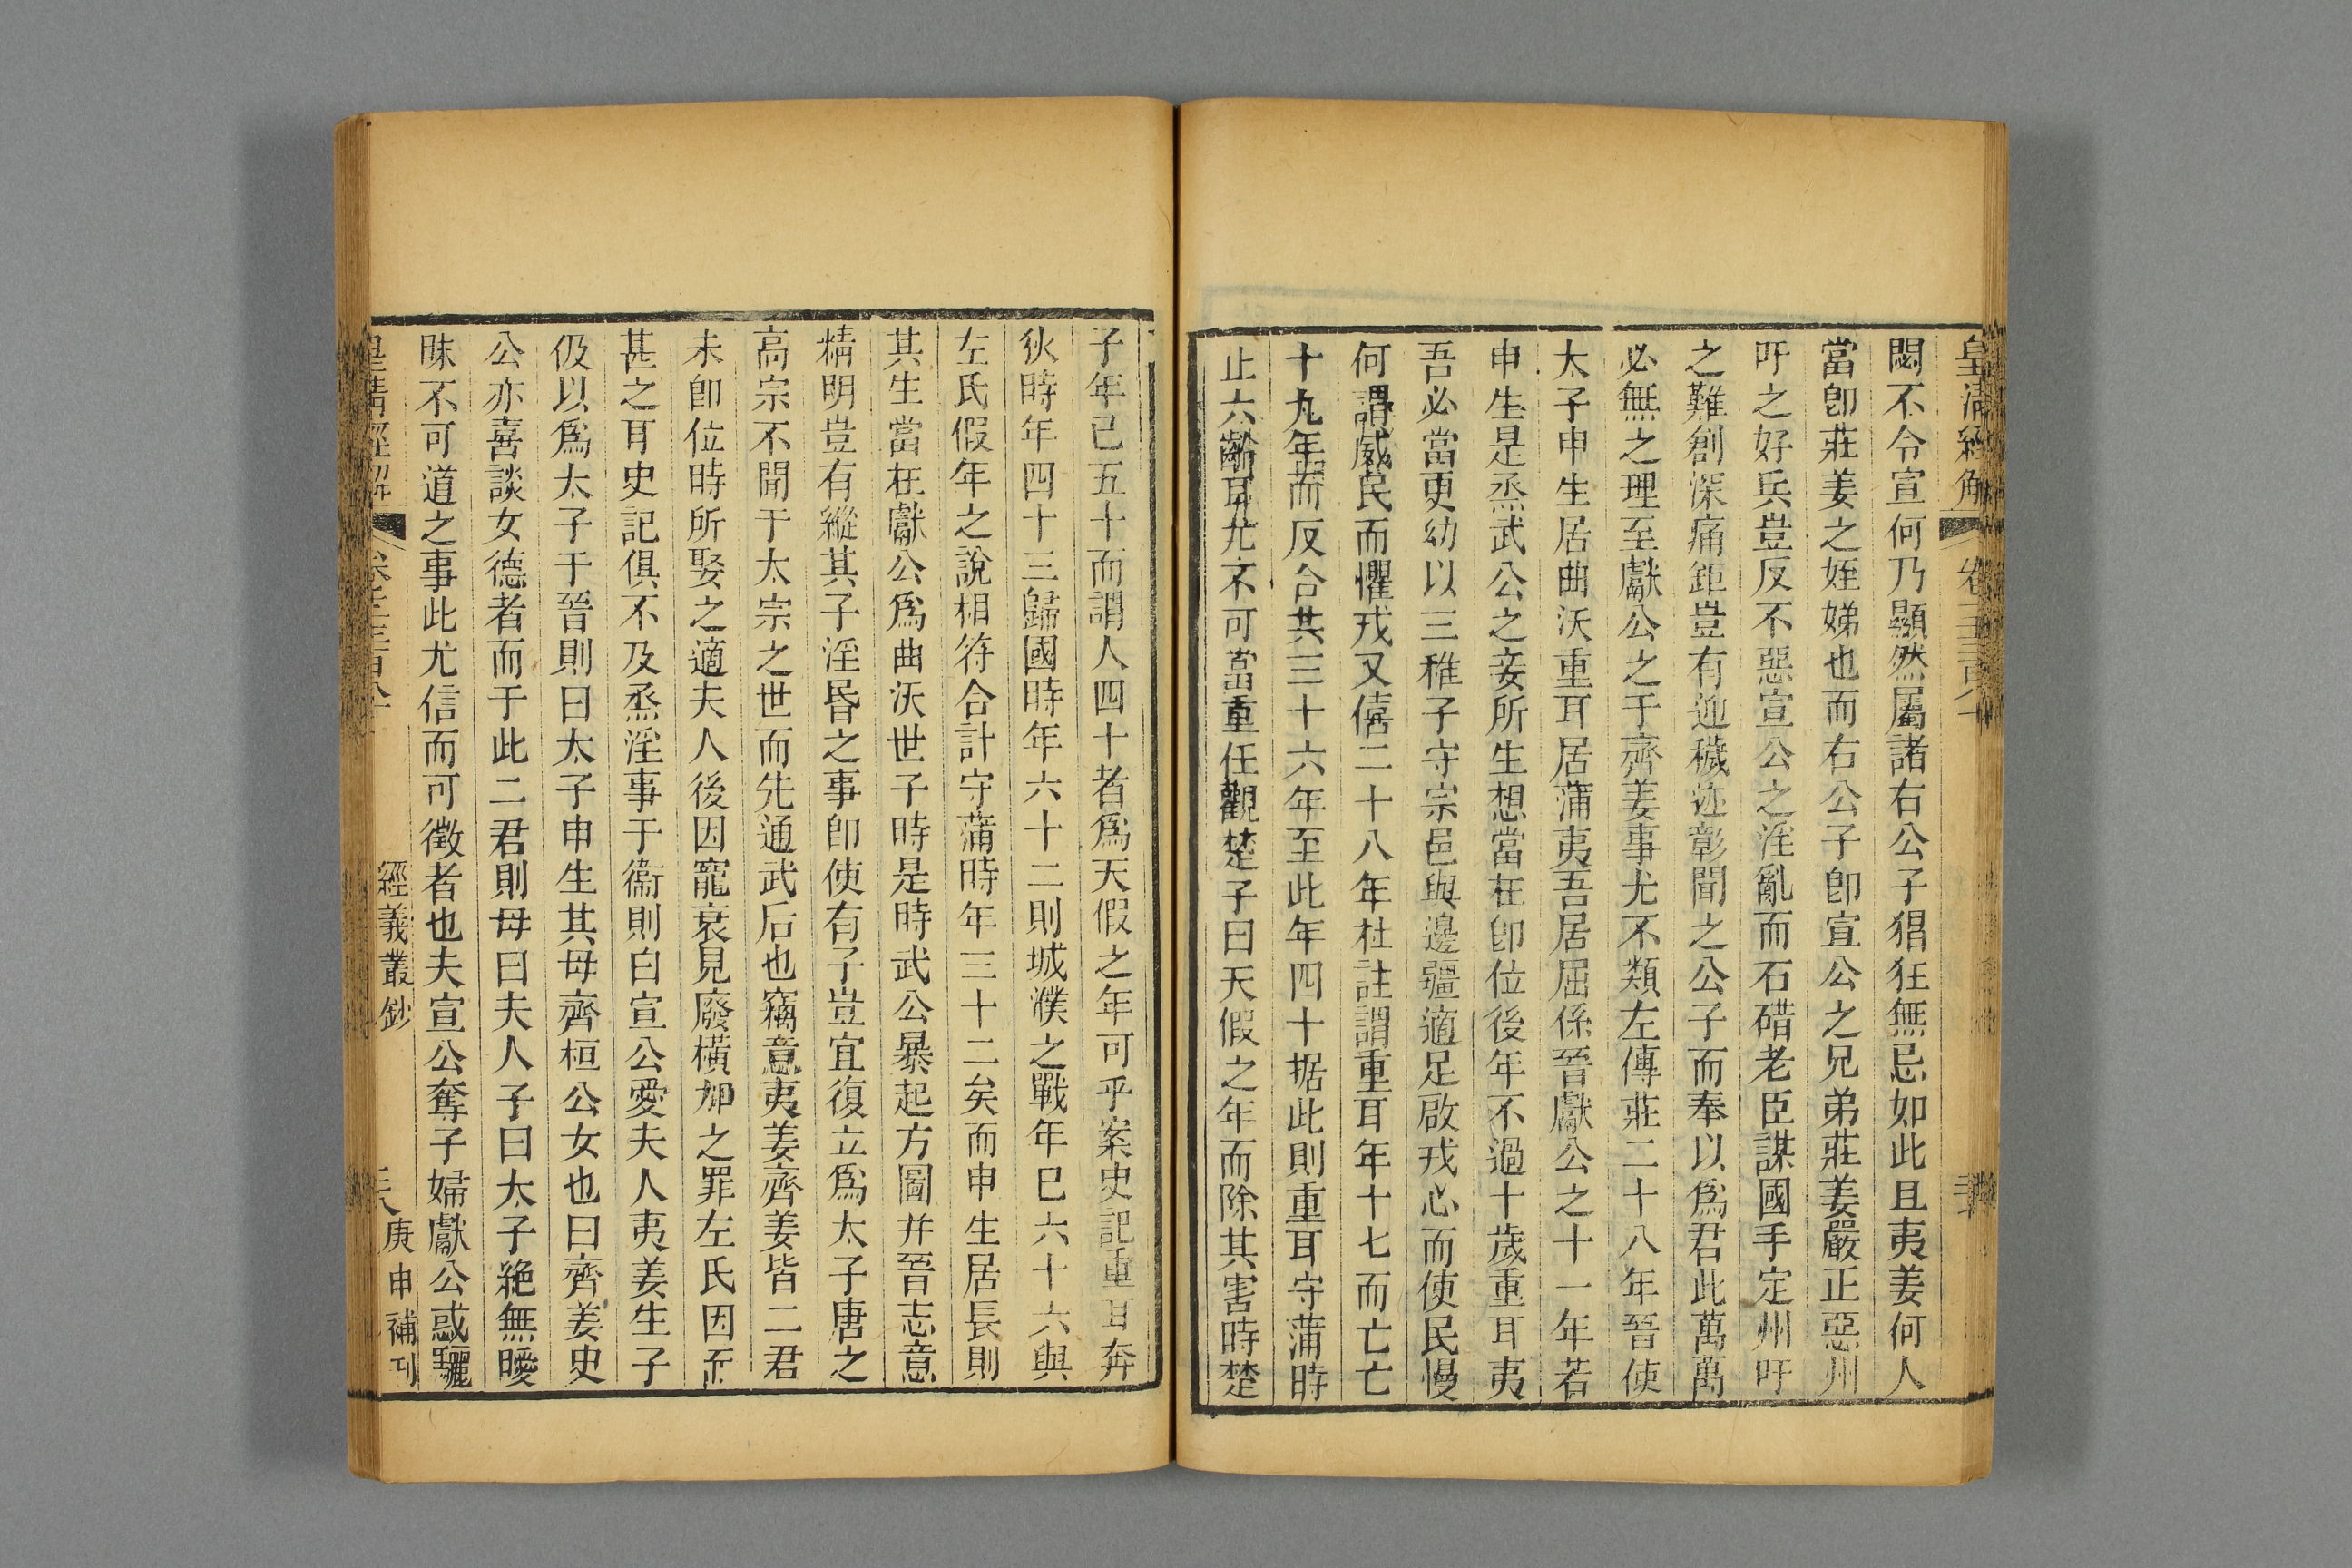 皇清經解 卷
閟不令宣何乃顯然屬諸右公子猖狂無忌如此且夷姜何人
當卽莊姜之姪娣也而右公子卽宣公之兄弟莊姜嚴正惡州
吁之好兵豈反不惡宣公之淫亂而石碏老臣謀國手定州吁
之難創深痛鉅豈有迎穢迹彰聞之公子而奉以爲君此萬萬
必無之理至獻公之于齊姜事尤不類左傳莊二十八年晉使
太子申生居曲沃重耳居蒲夷吾居屈係晉獻公之十一年若
申生是烝武公之妾所生想當在卽位後年不過十歲重耳夷
吾必當更幼以三稚子守宗邑與邊疆適足啟戎心而使民慢
何謂威民而懼戎又僖二十八年杜註謂重耳年十七而亡亡
十九年而反合共三十六年至此年四十据此則重耳守蒲時
止六齡耳尤不可當重任觀楚子曰天假之年而除其害時楚
子年已五十而謂人四十者爲天假之年可乎案史記重耳奔
狄時年四十三歸國時年六十二則城濮之戰年巳六十六與
左氏假年之說相符合計守蒲時年三十二矣而申生居長則
其生當在獻公爲曲沃世子時是時武公暴起方圖并晉志意
精明豈有縱其子淫昏之事卽使有子豈宜復立爲太子唐之
高宗不聞于太宗之世而先通武后也竊意夷姜齊姜皆二君
未卽位時所娶之適夫人後因寵衰見廢橫加之罪左氏因而
甚之耳史記俱不及烝淫事于衞則曰宣公愛夫人夷姜生子
伋以爲太子于晉則曰太子申生其母齊桓公女也曰齊姜史
公亦喜談女德者而于此二君則毋曰夫人子曰太子絶無曖
昧不可道之事此尤信而可徵者也夫宣公奪子婦獻公惑驪
皇清經解 經義叢鈔 庚申補刊